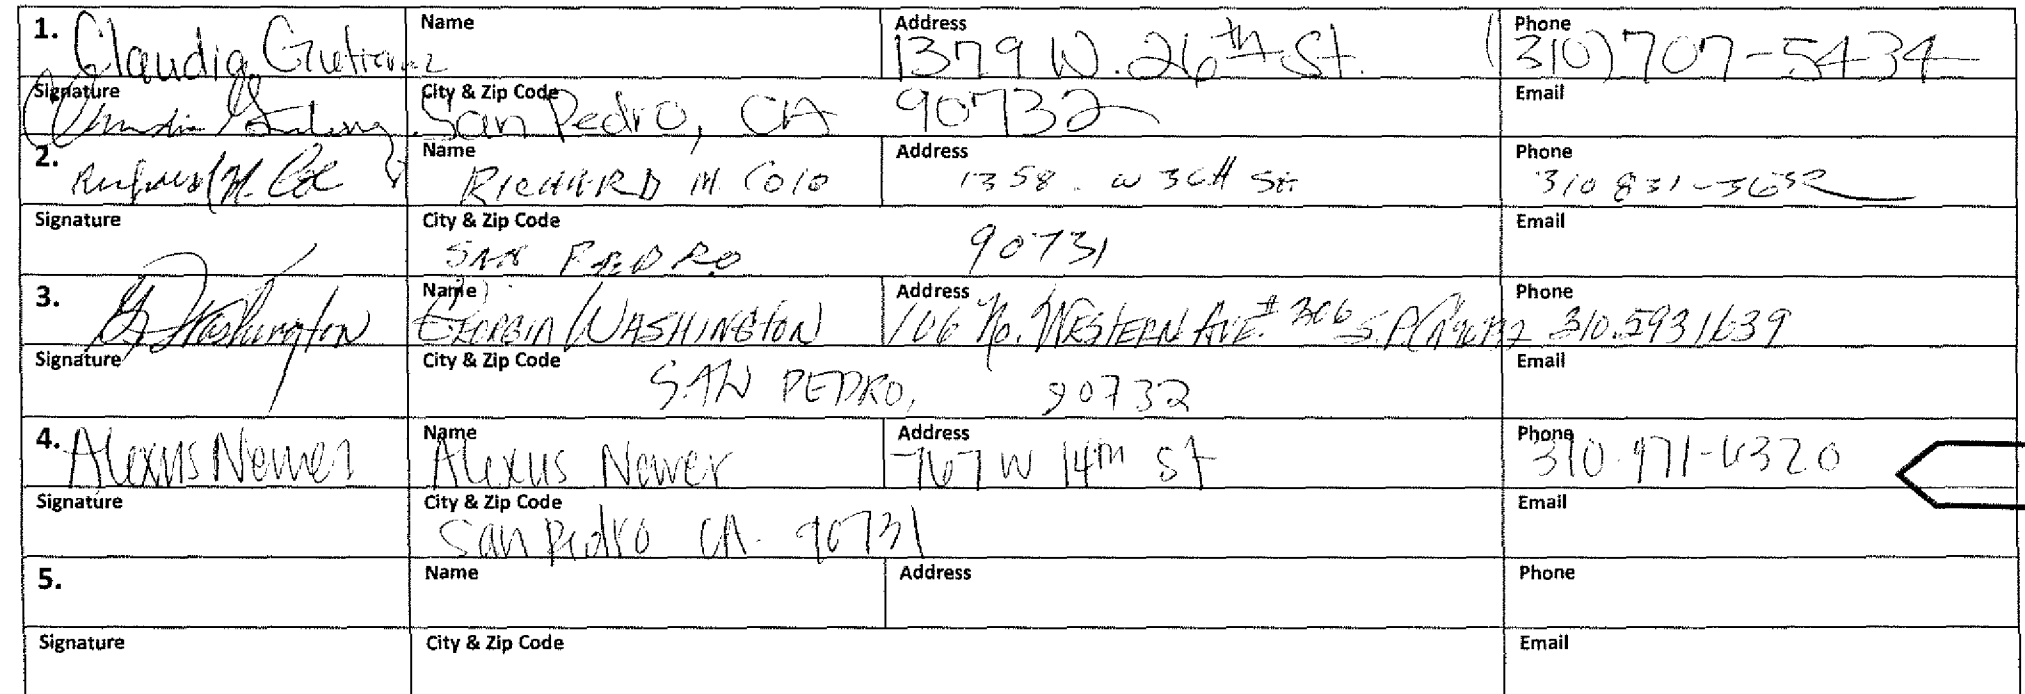 1. Claudia Gutierrez Name Address 1379 W. 26th St. Phone (310) 707-5434
Signature City & Zip Code San Pedro, CA 90732 Email
2. Name RICHARD M. Address 1358 . W St Phone 310 831-
Signature City & Zip Code SAN PEDRO 90731 Email
3. G Washington Name GEORGIA WASHINGTON Address 106 No. WESTERN AVE. #306 S.P. Phone 310.593 1639
Signature City & Zip Code SAN PEDRO, 90732 Email
4. Alexus Newer Name Alexus Newer Address 767 W 14th St Phone 310.971-6320
Signature City & Zip Code San Pedro CA. 90731 Email
5. Name Address Phone
Signature City & Zip Code Email